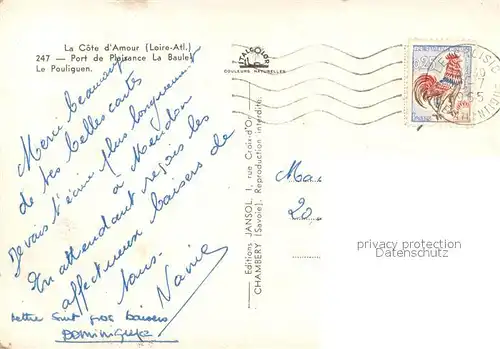 La Côte d'Amour (Loire-Atl.)
247 — Port de Plaisance La Baule-
Le Pouliguen.
Merci beaucoup
de tes belles cartes
Je vais t'écrire plus longuement
à Meudon
En attendant reçois les
affectueux baisers de
tous.
Vania
Lettre suit gros baisers
Dominique
ITALCOLOR
COULEURS NATURELLES
Editions JANSOL, 1, rue Croix-d'Or —
CHAMBERY (Savoie). Reproduction interdite.
0,25
Ma
20
privacy protection
Datenschutz